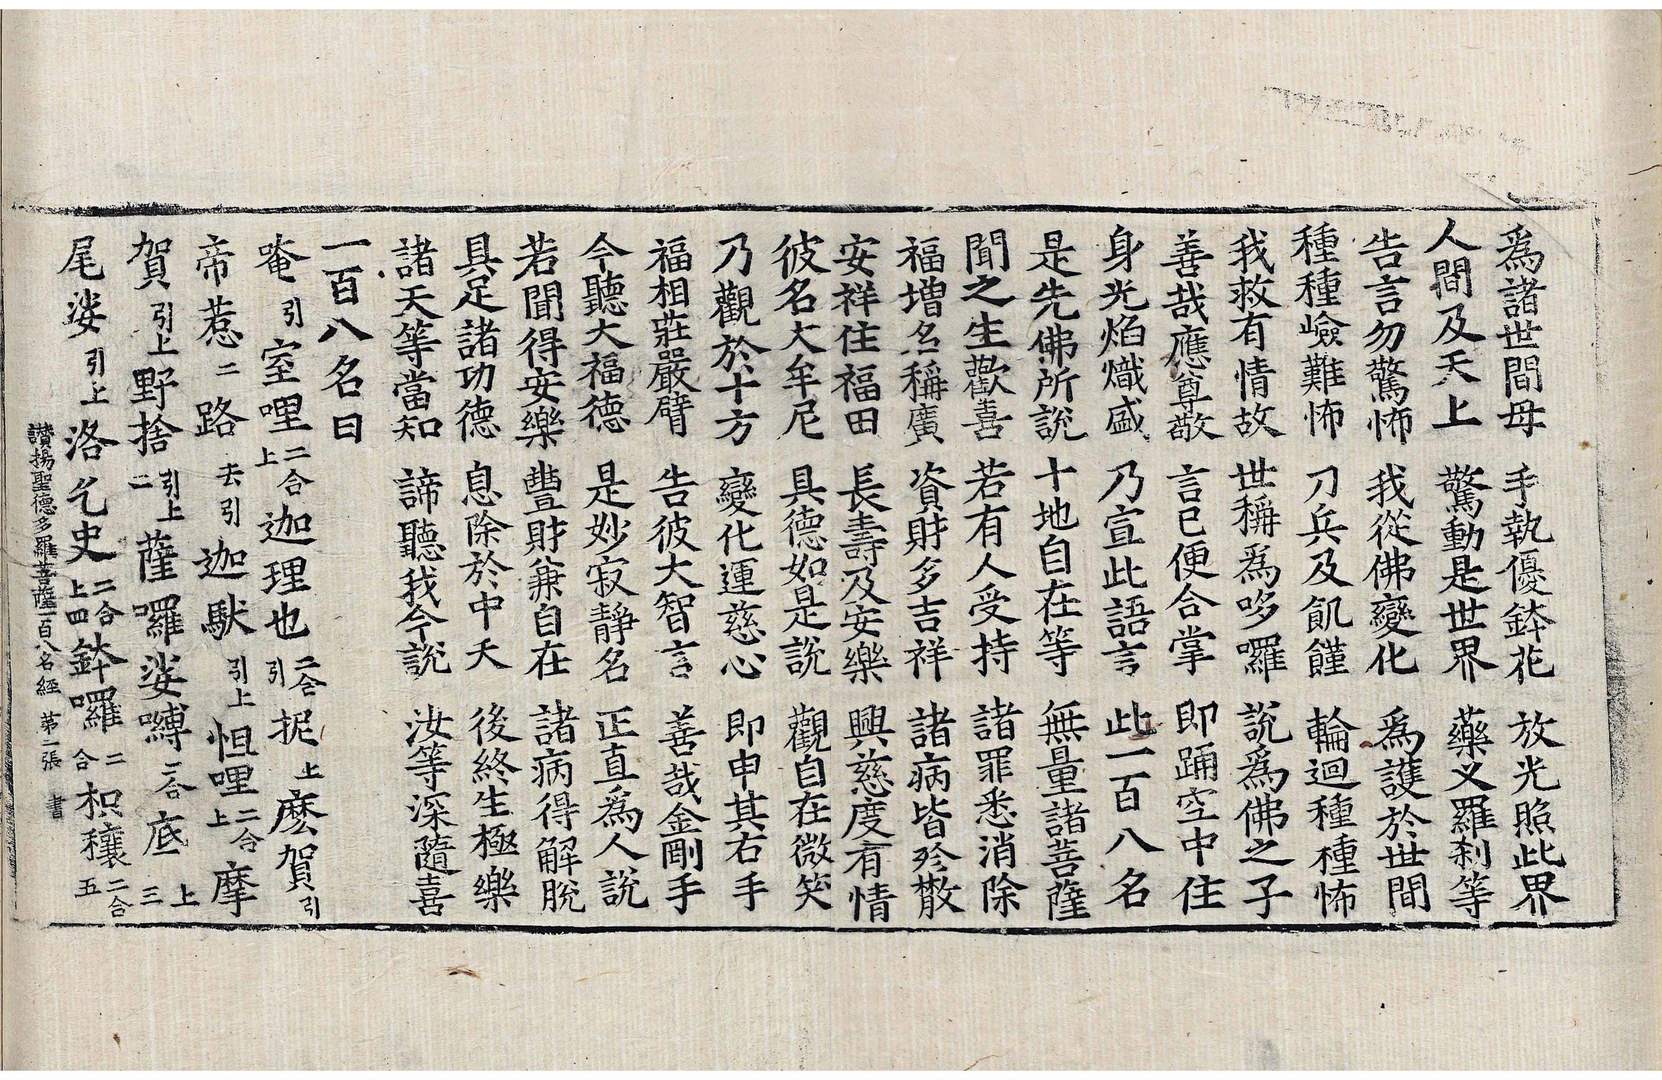 爲諸世間母 手執優鉢花 放光照此界
人間及天上 驚動是世界 藥叉羅刹等
告言勿驚怖 我從佛變化 爲護於世間
種種嶮難怖 刀兵及飢饉 輪迴種種怖
我救有情故 世稱爲哆囉 說爲佛之子
善哉應尊敬 言已便合掌 即踊空中住
身光焰熾盛 乃宣此語言 此一百八名
是先佛所說 十地自在等 無量諸菩薩
聞之生歡喜 若有人受持 諸罪悉消除
福增名稱廣 資財多吉祥 諸病皆殄散
安祥住福田 長壽及安樂 興慈度有情
彼名大牟尼 具德如是說 觀自在微笑
乃觀於十方 變化運慈心 即申其右手
福相莊嚴臂 告彼大智言 善哉金剛手
今聽大福德 是妙寂靜名 正直爲人說
若聞得安樂 豐財兼自在 諸病得解脫
具足諸功德 息除於中夭 後終生極樂
諸天等當知 諦聽我今說 汝等深隨喜
一百八名曰
唵引室哩二合上迦理也二合引抳上麽賀引
帝惹二路去引迦馱引上怛哩二合上摩
賀引上野捨引上二薩囉娑嚩二合底上三
尾娑引上洛乞史二合上四鉢囉二合枳穰二合五
讚揚聖德多羅菩薩一百八名經 第二張 書